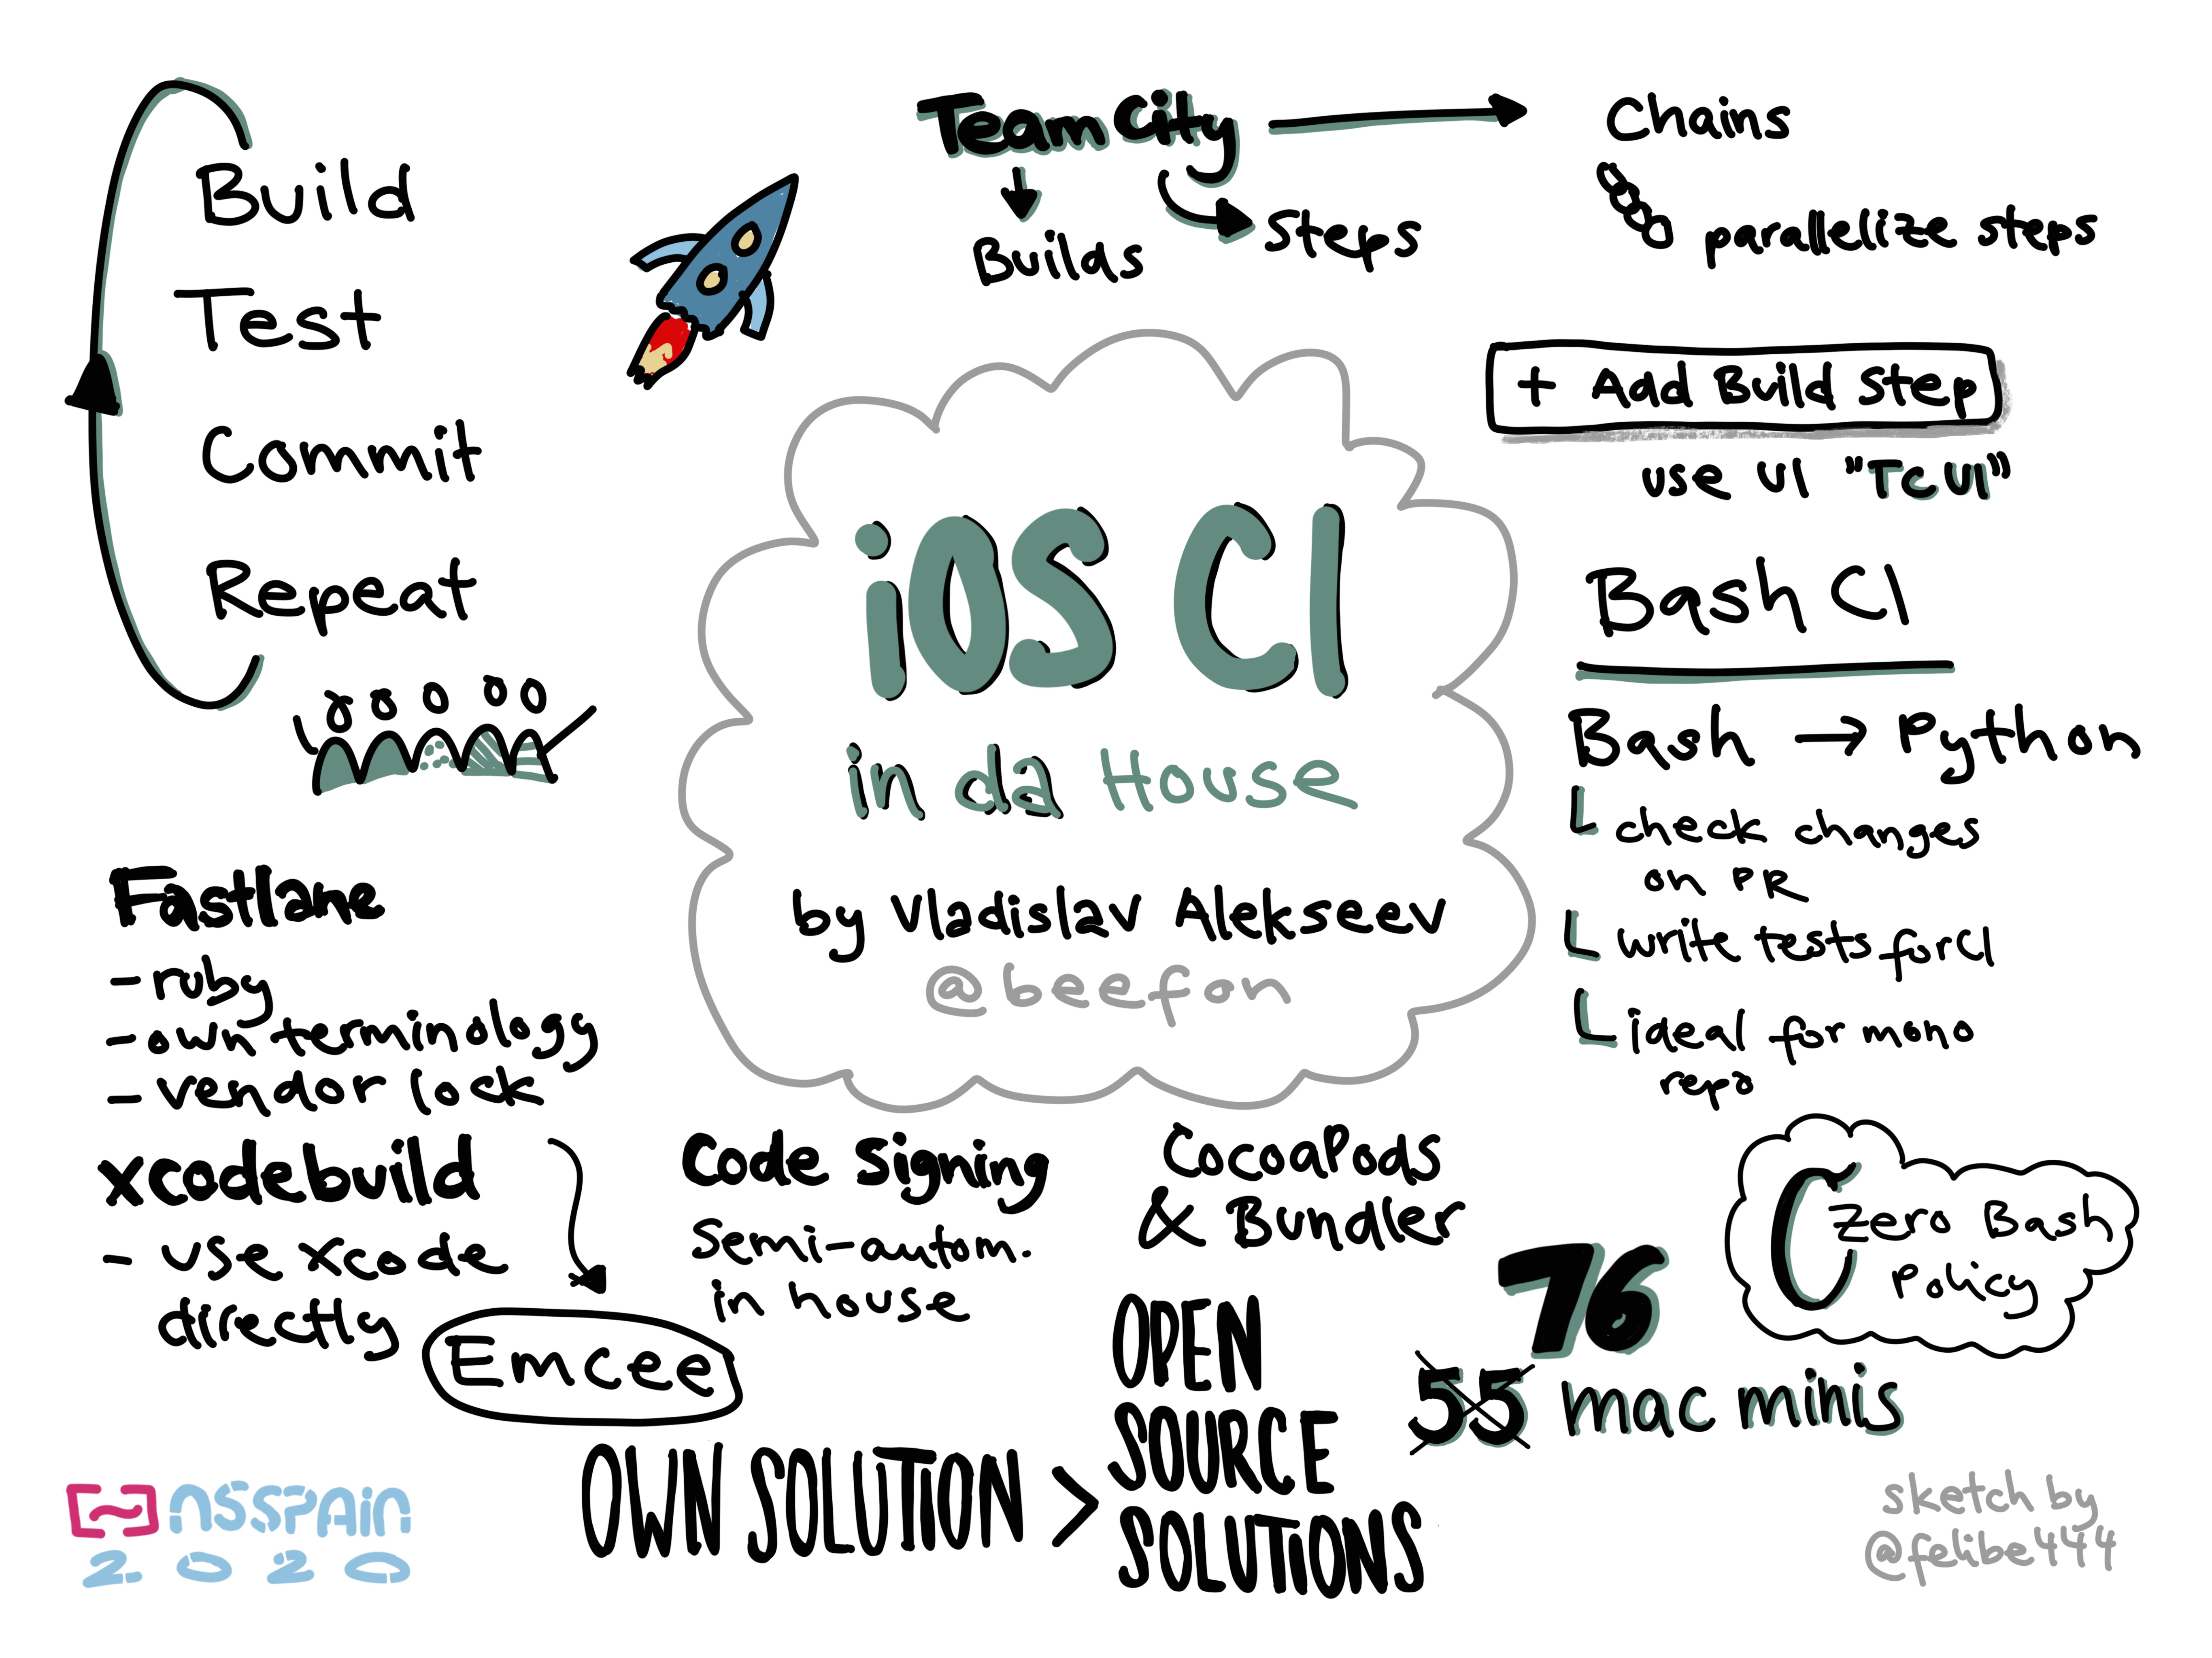 Build
Test
Commit
Repeat
TeamCity
Builds
Steps
Chains
parallelize steps
+ Add Build Step
use UI "TC UI"
iOS CI
in da House
by Vladislav Alekseev
@beefon
Bash CI
Bash → Python
check changes
on PR
write tests for CI
ideal for mono
repo
Zero Bash
Policy
Fastlane
- ruby
- own terminology
- vendor lock
xcodebuild
- use xcode
directly
Emcee
Code Signing
semi-autom.
in house
CocoaPods
& Bundler
76
55 mac minis
OWN SOLUTION >
OPEN
SOURCE
SOLUTIONS
NSSPAIN
2020
sketch by
@felibe444